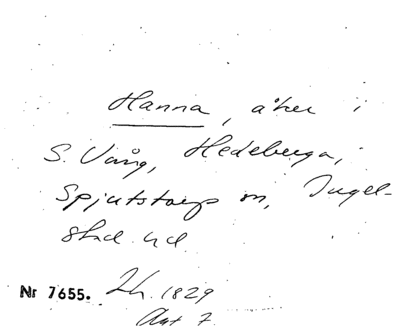 Hanna, åker i
S. Vång, Hedeberga,
Spjutstorps sn, Ingel-
stad hd
Nr 7655. Lh. 1829
Akt 7